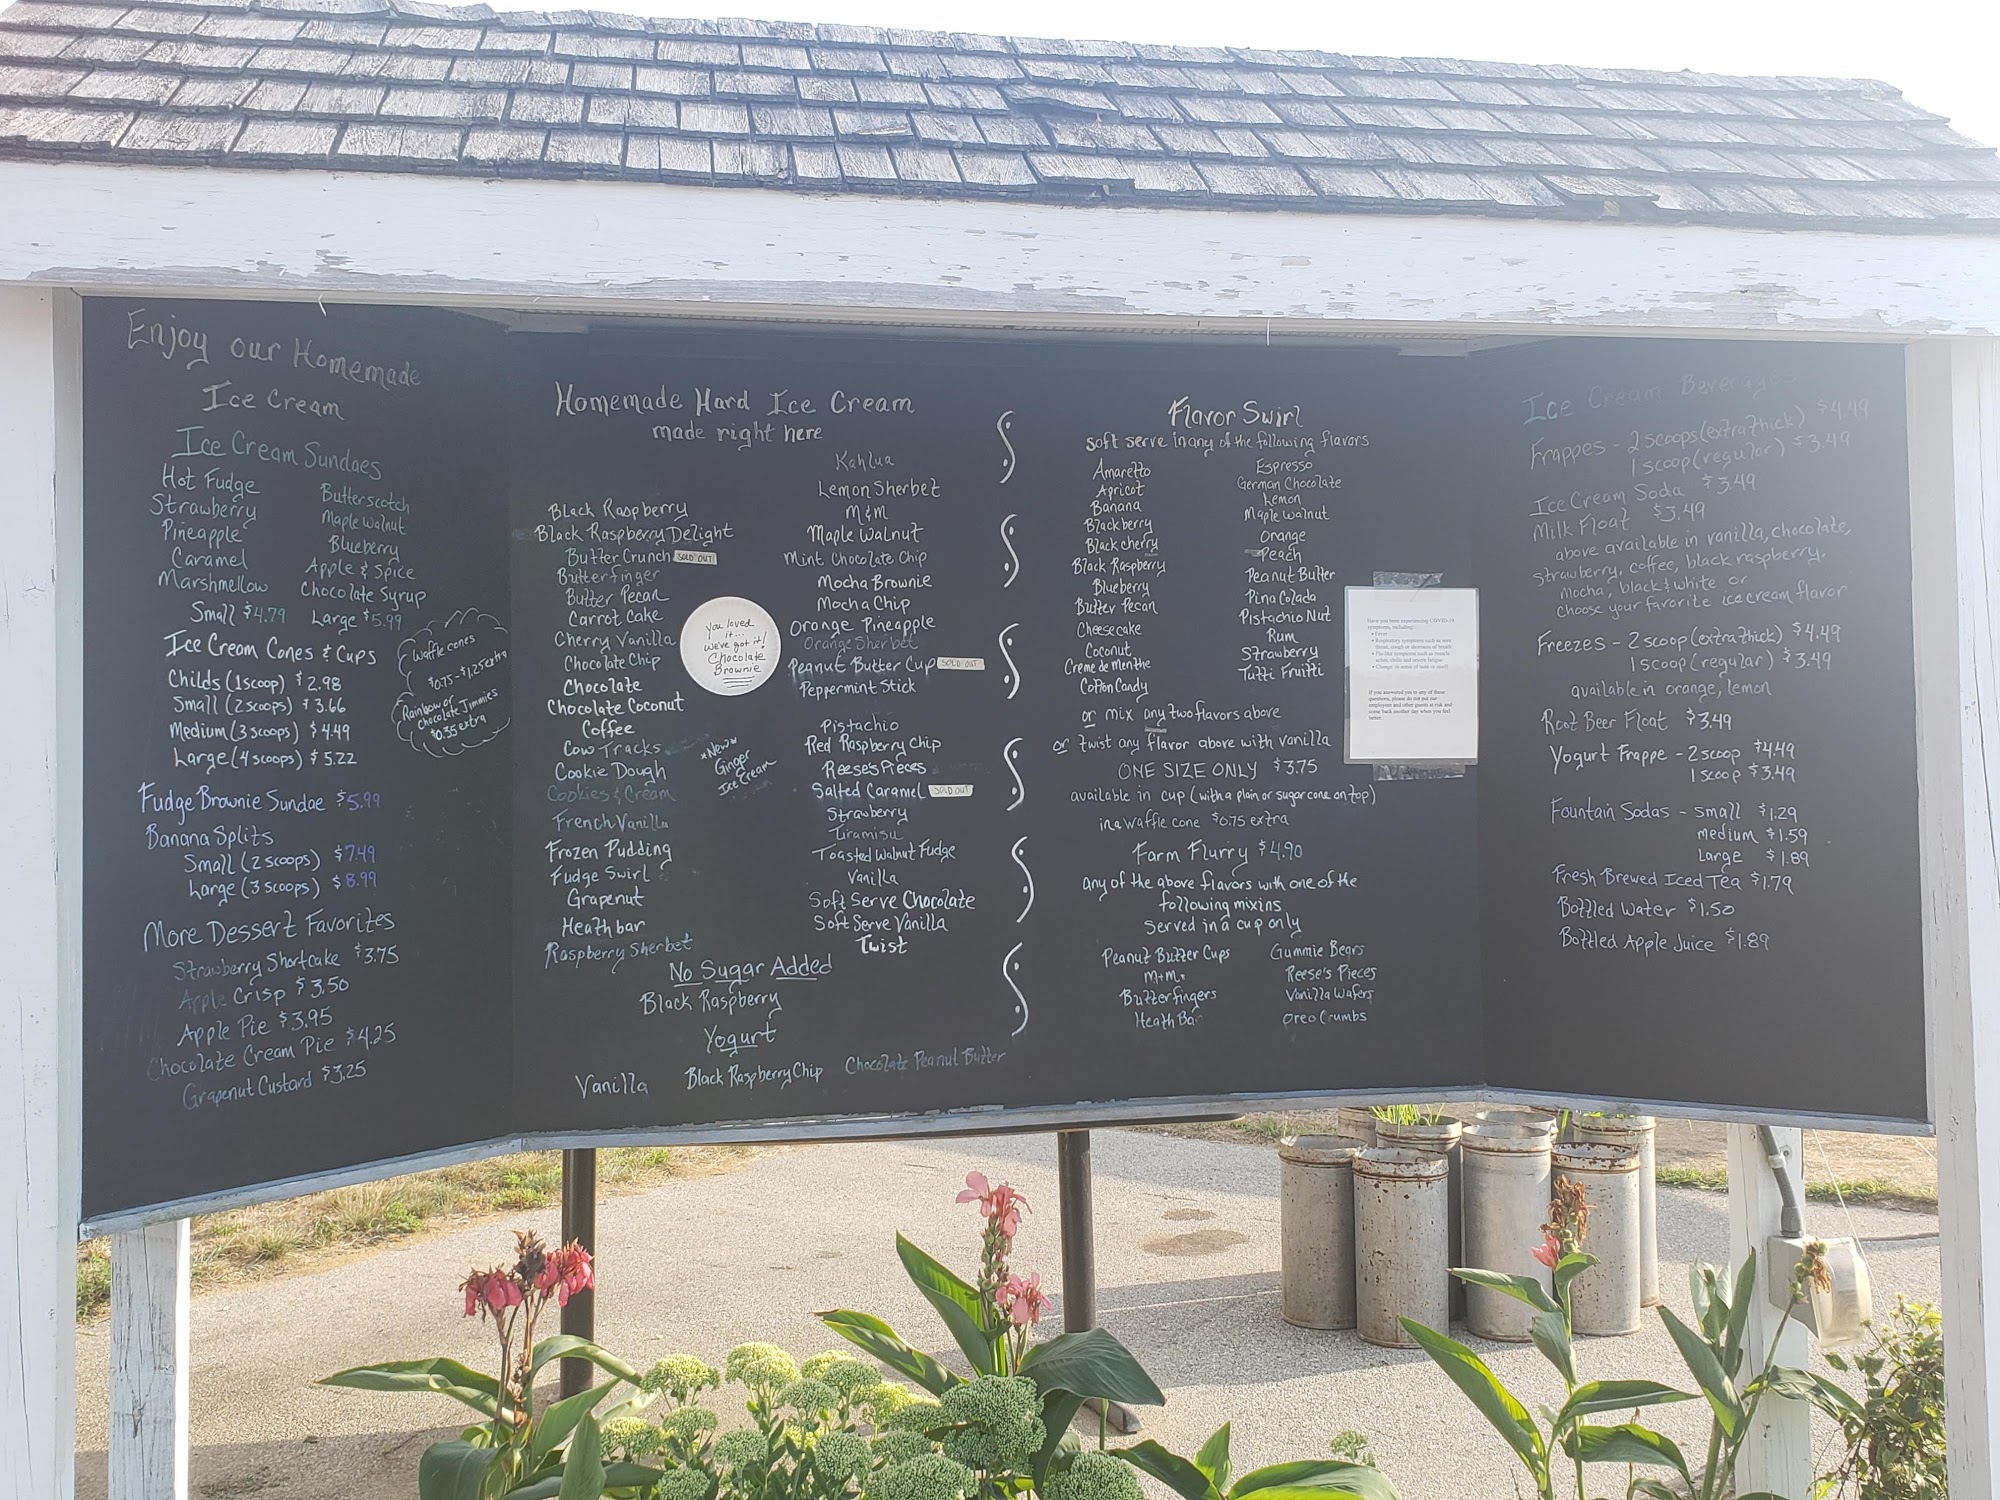 Enjoy our Homemade
Ice Cream
Ice Cream Sundaes
Hot Fudge
Strawberry
Pineapple
Caramel
Marshmellow
Butterscotch
Maple Walnut
Blueberry
Apple & Spice
Chocolate Syrup
Small $4.79 Large $5.99
Ice Cream Cones & Cups
Childs (1 scoop) $2.98
Small (2 scoops) $3.66
Medium (3 scoops) $4.49
Large (4 scoops) $5.22
Waffle cones
$0.75-$1.25 extra
Rainbow or
Chocolate Jimmies
$0.35 extra
Fudge Brownie Sundae $5.99
Banana Splits
Small (2 scoops) $7.49
Large (3 scoops) $8.99
More Dessert Favorites
Strawberry Shortcake $3.75
Apple Crisp $3.50
Apple Pie $3.95
Chocolate Cream Pie $4.25
Grapenut Custard $3.25
Homemade Hard Ice Cream
made right here
Black Raspberry
Black Raspberry Delight
Butter Crunch SOLD OUT
Butterfinger
Butter Pecan
Carrot Cake
Cherry Vanilla
Chocolate Chip
Chocolate
Chocolate Coconut
Coffee
Cow Tracks
Cookie Dough
Cookies & Cream
French Vanilla
Frozen Pudding
Fudge Swirl
Grapenut
Heathbar
Raspberry Sherbet
You loved
it...
we've got it!
Chocolate
Brownie
*New*
Ginger
Ice Cream
Kahlua
Lemon Sherbet
M&M
Maple Walnut
Mint Chocolate Chip
Mocha Brownie
Mocha Chip
Orange Pineapple
Orange Sherbet
Peanut Butter Cup SOLD OUT
Peppermint Stick
Pistachio
Red Raspberry Chip
Reese's Pieces
Salted Caramel SOLD OUT
Strawberry
Tiramisu
Toasted Walnut Fudge
Vanilla
Soft Serve Chocolate
Soft Serve Vanilla
Twist
No Sugar Added
Black Raspberry
Yogurt
Vanilla Black Raspberry Chip Chocolate Peanut Butter
Flavor Swirl
soft serve in any of the following flavors
Amaretto
Apricot
Banana
Blackberry
Black cherry
Black Raspberry
Blueberry
Butter Pecan
Cheesecake
Coconut
Creme de Menthe
Cotton Candy
Espresso
German Chocolate
Lemon
Maple Walnut
Orange
Peach
Peanut Butter
Pina Colada
Pistachio Nut
Rum
Strawberry
Tutti Fruitti
or mix any two flavors above
or twist any flavor above with vanilla
ONE SIZE ONLY $3.75
available in cup (with a plain or sugar cone on top)
in a waffle cone $0.75 extra
Farm Flurry $4.90
any of the above flavors with one of the
following mixins
Served in a cup only
Peanut Butter Cups
M+Ms
Butterfingers
Heath Bar
Gummie Bears
Reese's Pieces
Vanilla Wafers
Oreo Crumbs
Have you been experiencing COVID-19
symptoms, including:
• Fever
• Respiratory symptoms such as sore
throat, cough or shortness of breath
• Flu-like symptoms such as muscle
aches, chills and severe fatigue
• Change in sense of taste or smell
If you answered yes to any of these
questions, please do not put our
employees and other guests at risk and
come back another day when you feel
better.
Ice Cream Beverages
Frappes - 2 scoops (extra thick) $4.49
1 scoop (regular) $3.49
Ice Cream Soda $3.49
Milk Float $3.49
above available in vanilla, chocolate,
strawberry, coffee, black raspberry,
mocha, black & white or
choose your favorite ice cream flavor
Freezes - 2 scoop (extra thick) $4.49
1 scoop (regular) $3.49
available in orange, lemon
Root Beer Float $3.49
Yogurt Frappe - 2 scoop $4.49
1 scoop $3.49
Fountain Sodas - small $1.29
medium $1.59
Large $1.89
Fresh Brewed Iced Tea $1.79
Bottled Water $1.50
Bottled Apple Juice $1.89